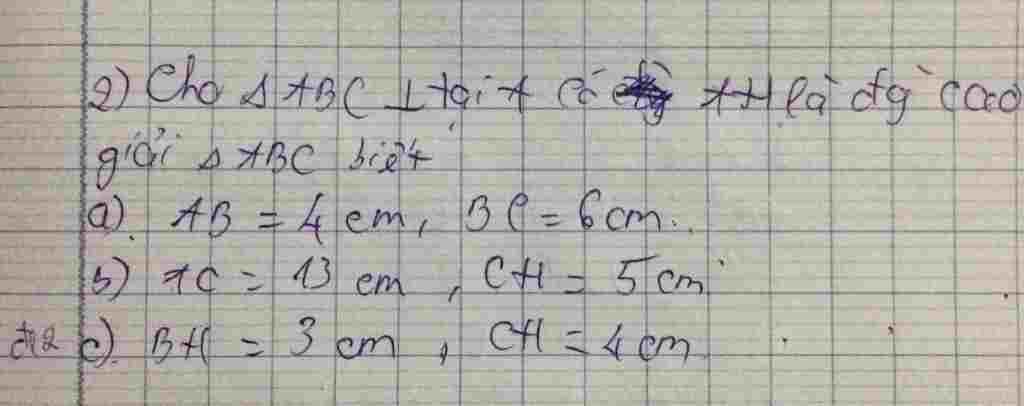 2) Cho Δ ABC ⊥ tại A có AH là đg cao
giải Δ ABC biết
a) AB = 4 cm, BC = 6 cm.
b) AC = 13 cm, CH = 5 cm
c) BH = 3 cm, CH = 4 cm